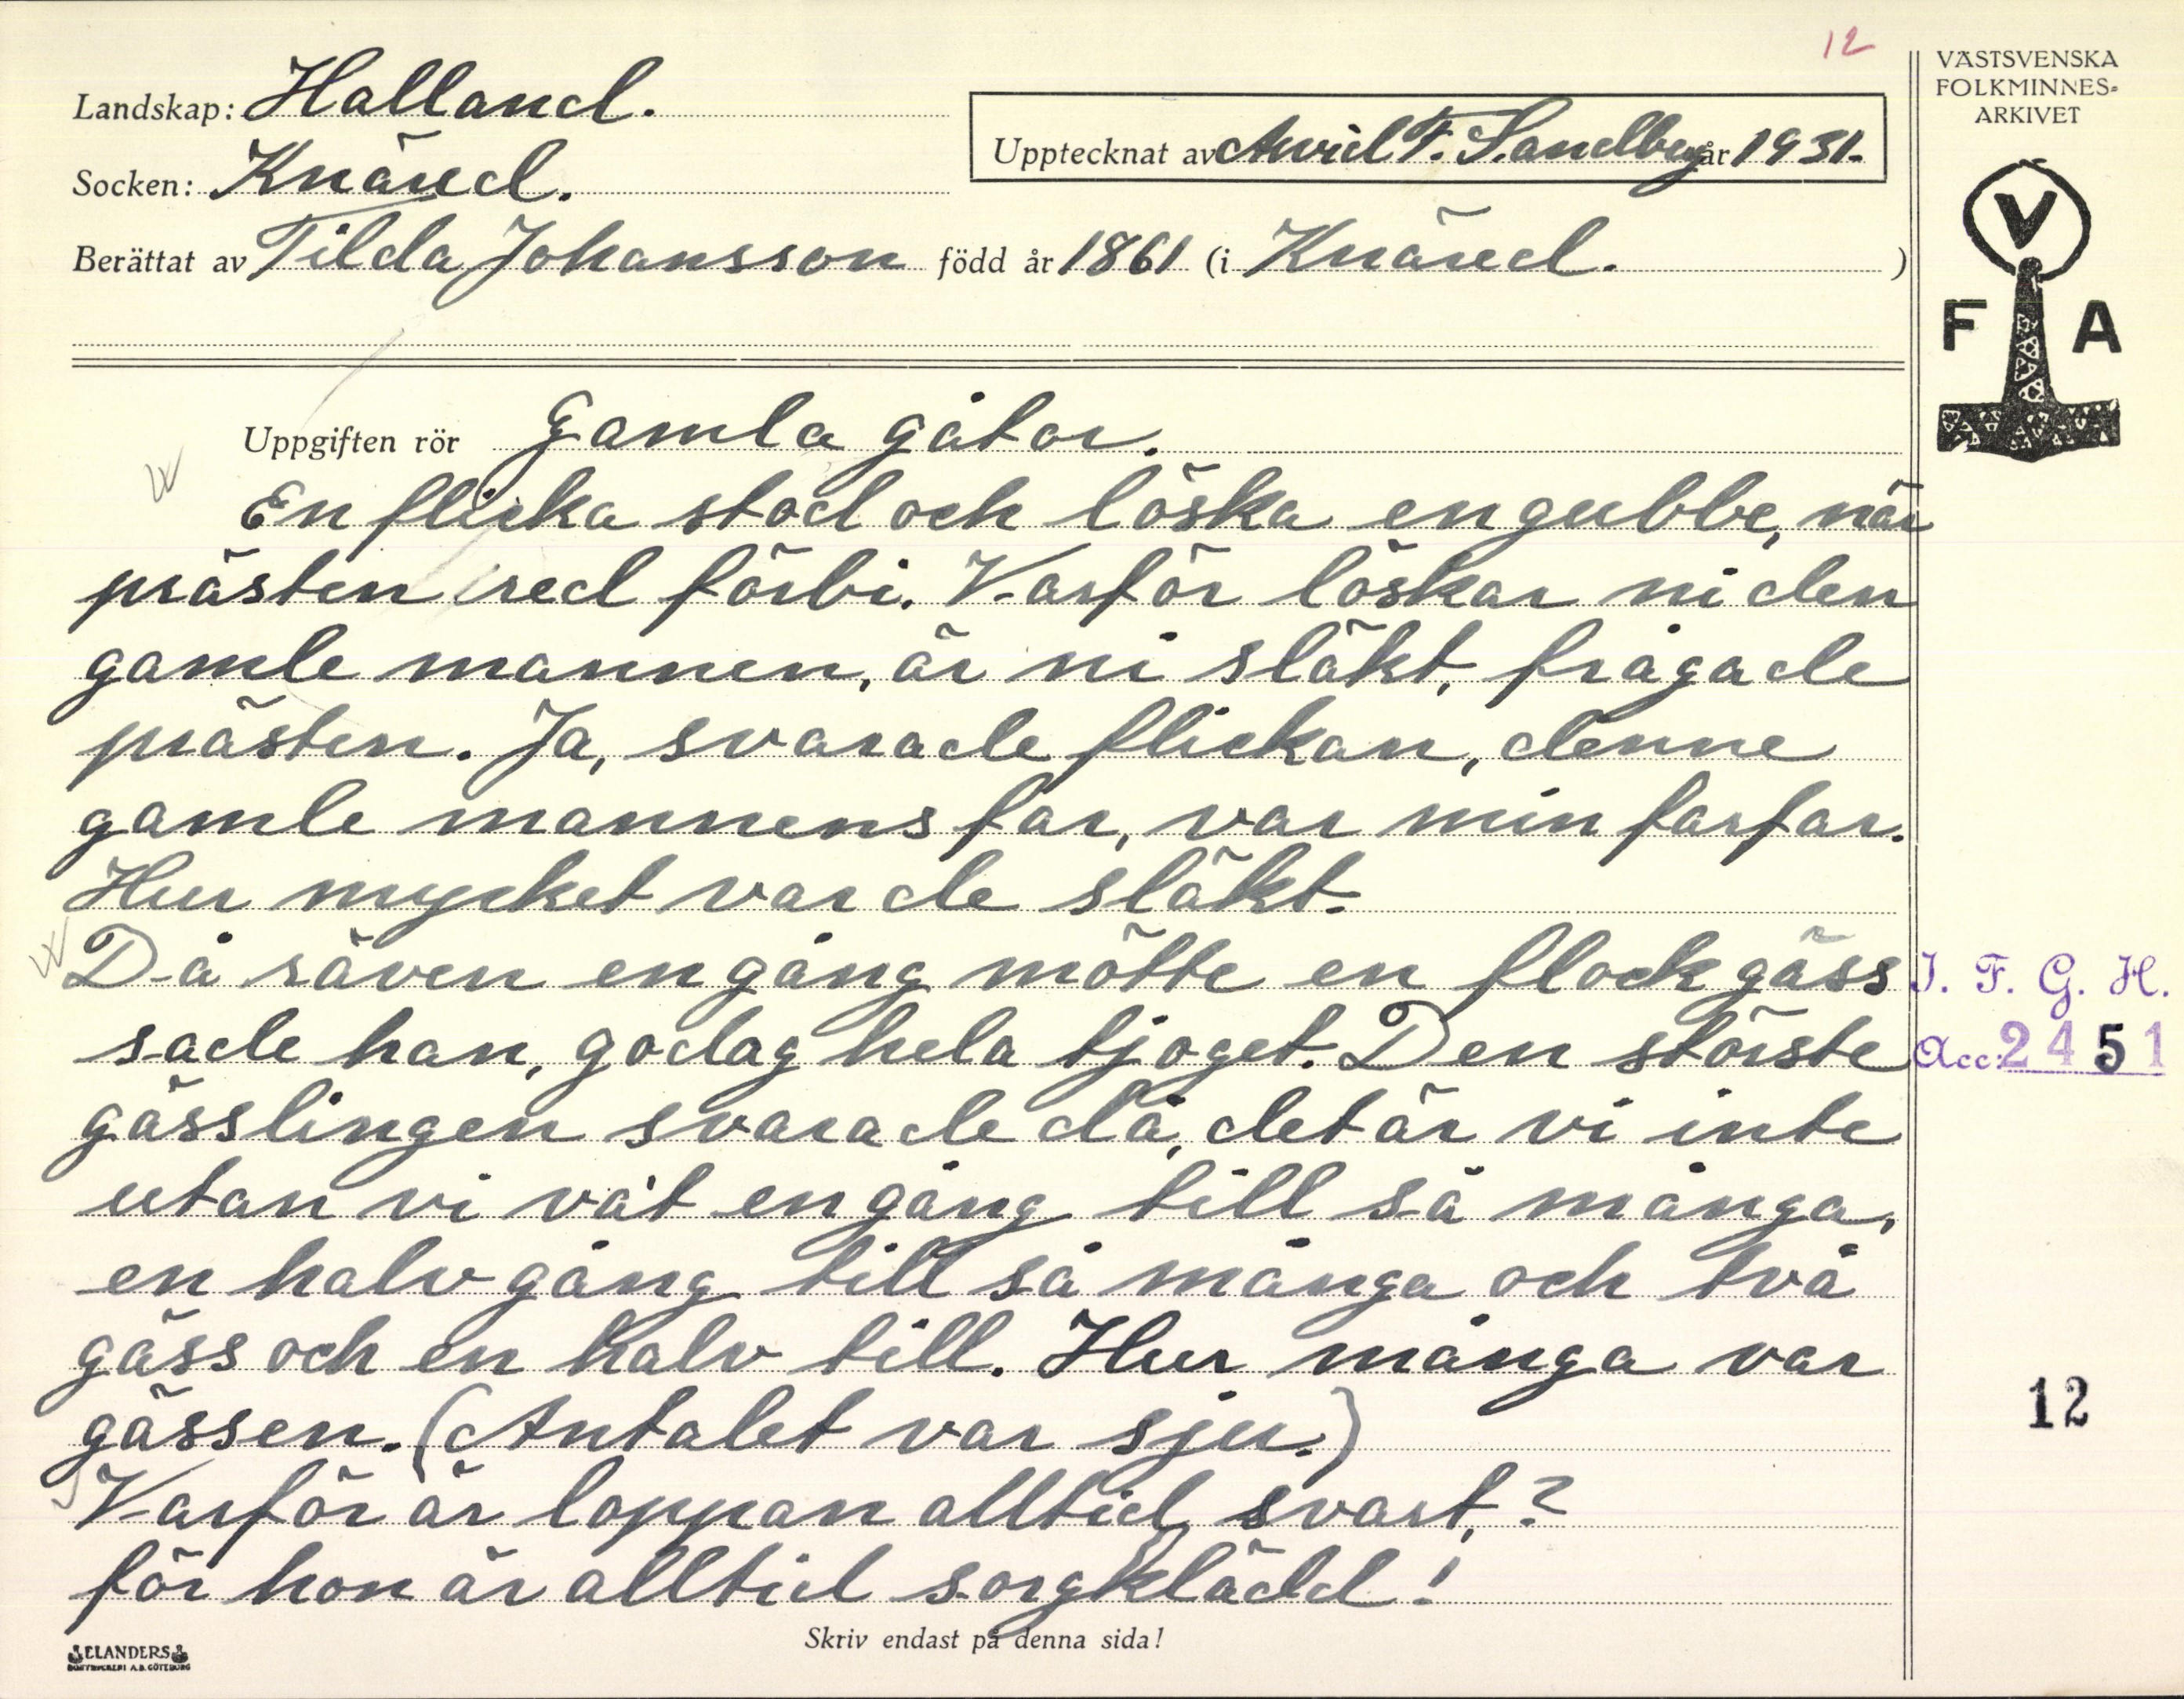 12
VÄSTSVENSKA
FOLKMINNES-
ARKIVET
Landskap: Halland.
Upptecknat av Arvid F. Sandberg år 1931.
Socken: Knäred.
Berättat av Tilda Johansson född år 1861 (i Knäred.)
V
F A
Uppgiften rör Gamla gåtor.
En flicka stod och löska en gubbe, när
prästen red förbi. Varför löskar ni den
gamle mannen, är ni släkt, frågade
prästen. Ja, svarade flickan, denne
gamle mannens far, var min farfar.
Hur mycket var de släkt.
Då räven engång mötte en flock gäss
sade han, godag hela tjoget. Den störste
gässlingen svarade då, det är vi inte
utan vi vát engång till så många,
en halv gång till så många och två
gäss och en halv till. Hur många var
gässen. (Antalet var sju.)
Varför är loppan alltid svart,?
för hon är alltid sorgklädd!
I. F. G. H.
Acc: 2451
12
Skriv endast på denna sida!
ELANDERS
BOKTRYCKERI A.B. GÖTEBORG